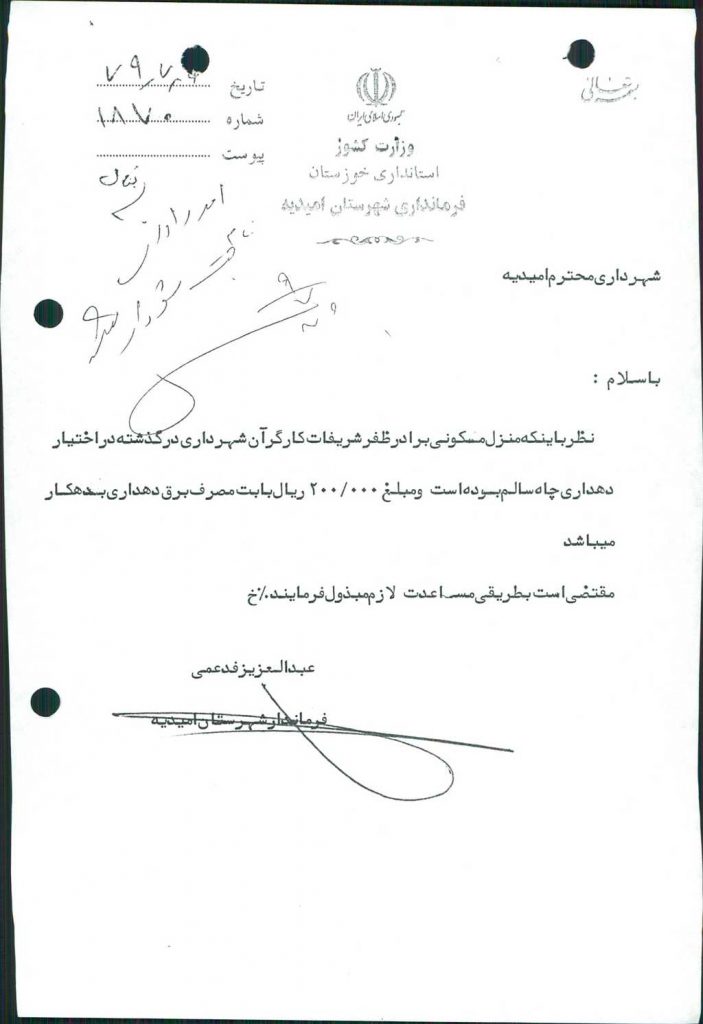 بسمه تعالی
جمهوری اسلامی ایران
وزارت کشور
استانداری خوزستان
فرمانداری شهرستان امیدیه
تاریخ
شماره ۱۸۷۰
پیوست
شهرداری محترم امیدیه
باسلام :
نظر باینکه منزل مسکونی برادر ظفر شریفات کارگر آن شهرداری در گذشته در اختیار
دهداری چاه سالم بوده است ومبلغ ۲۰۰/۰۰۰ ریال بابت مصرف برق دهداری بدهکار
میباشد
مقتضی است بطریقی مساعدت لازم مبذول فرمایند٪خ
عبدالعزیز فدعمی
فرماندار شهرستان امیدیه